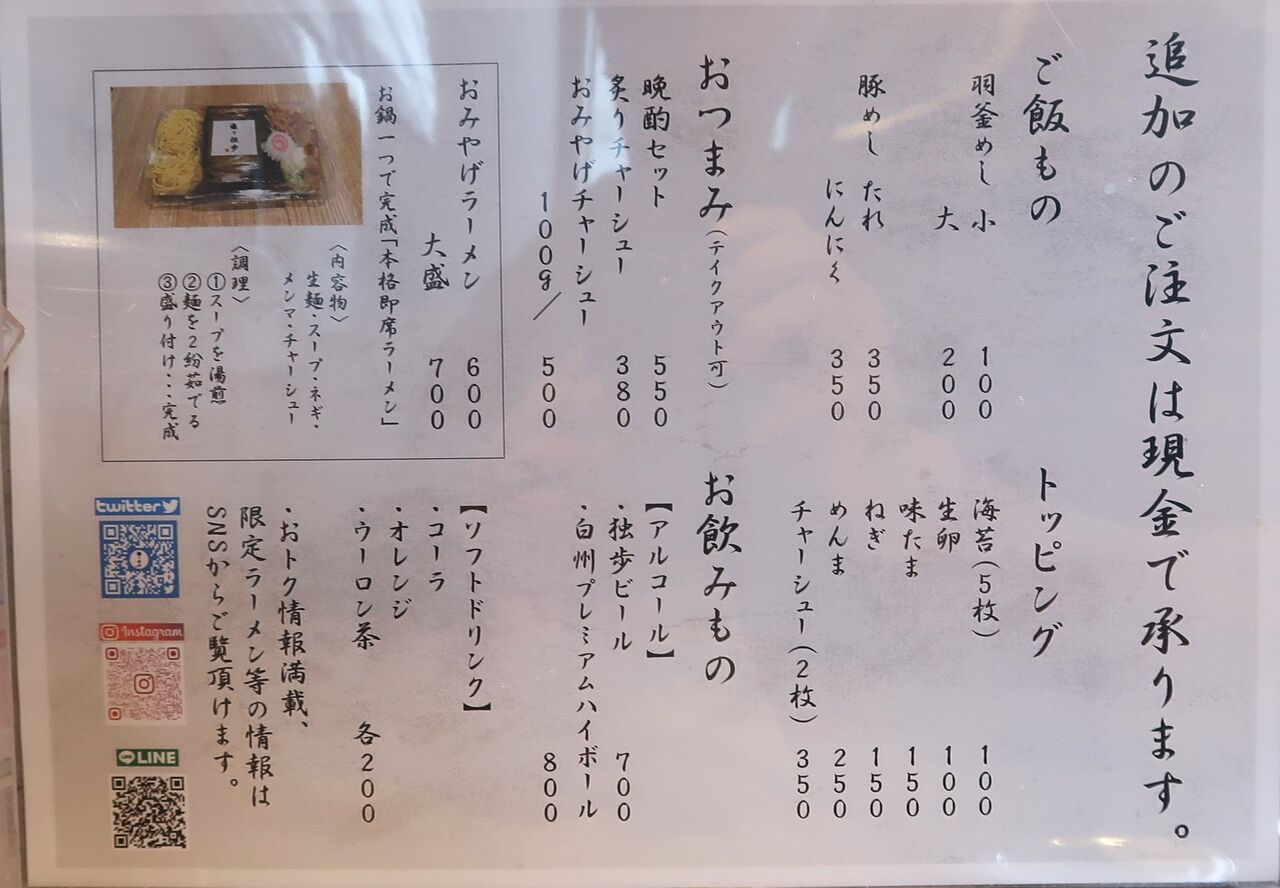 追加のご注文は現金で承ります。
ご飯もの
羽釜めし 小 100
大 200
豚めし たれ 350
にんにく 350
トッピング
海苔(5枚) 100
生卵 100
味たま 150
ねぎ 150
めんま 250
チャーシュー(2枚) 350
おつまみ(テイクアウト可)
晩酌セット 550
炙りチャーシュー 380
おみやげチャーシュー
100g/ 500
おみやげラーメン 600
大盛 700
お鍋一つで完成「本格即席ラーメン」
〈内容物〉
生麺・スープ・ネギ・
メンマ・チャーシュー
〈調理〉
①スープを湯煎
②麺を2紛茹でる
③盛り付け・・完成
お飲みもの
【アルコール】
・独歩ビール 700
・白州プレミアムハイボール 800
【ソフトドリンク】
・コーラ
・オレンジ
・ウーロン茶 各200
・おトク情報満載、
限定ラーメン等の情報は
SNSからご覧頂けます。
twitter
Instagram
LINE